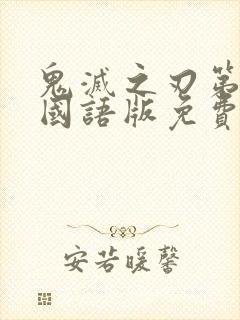 鬼滅之刃第
國語版免費
安若暖馨